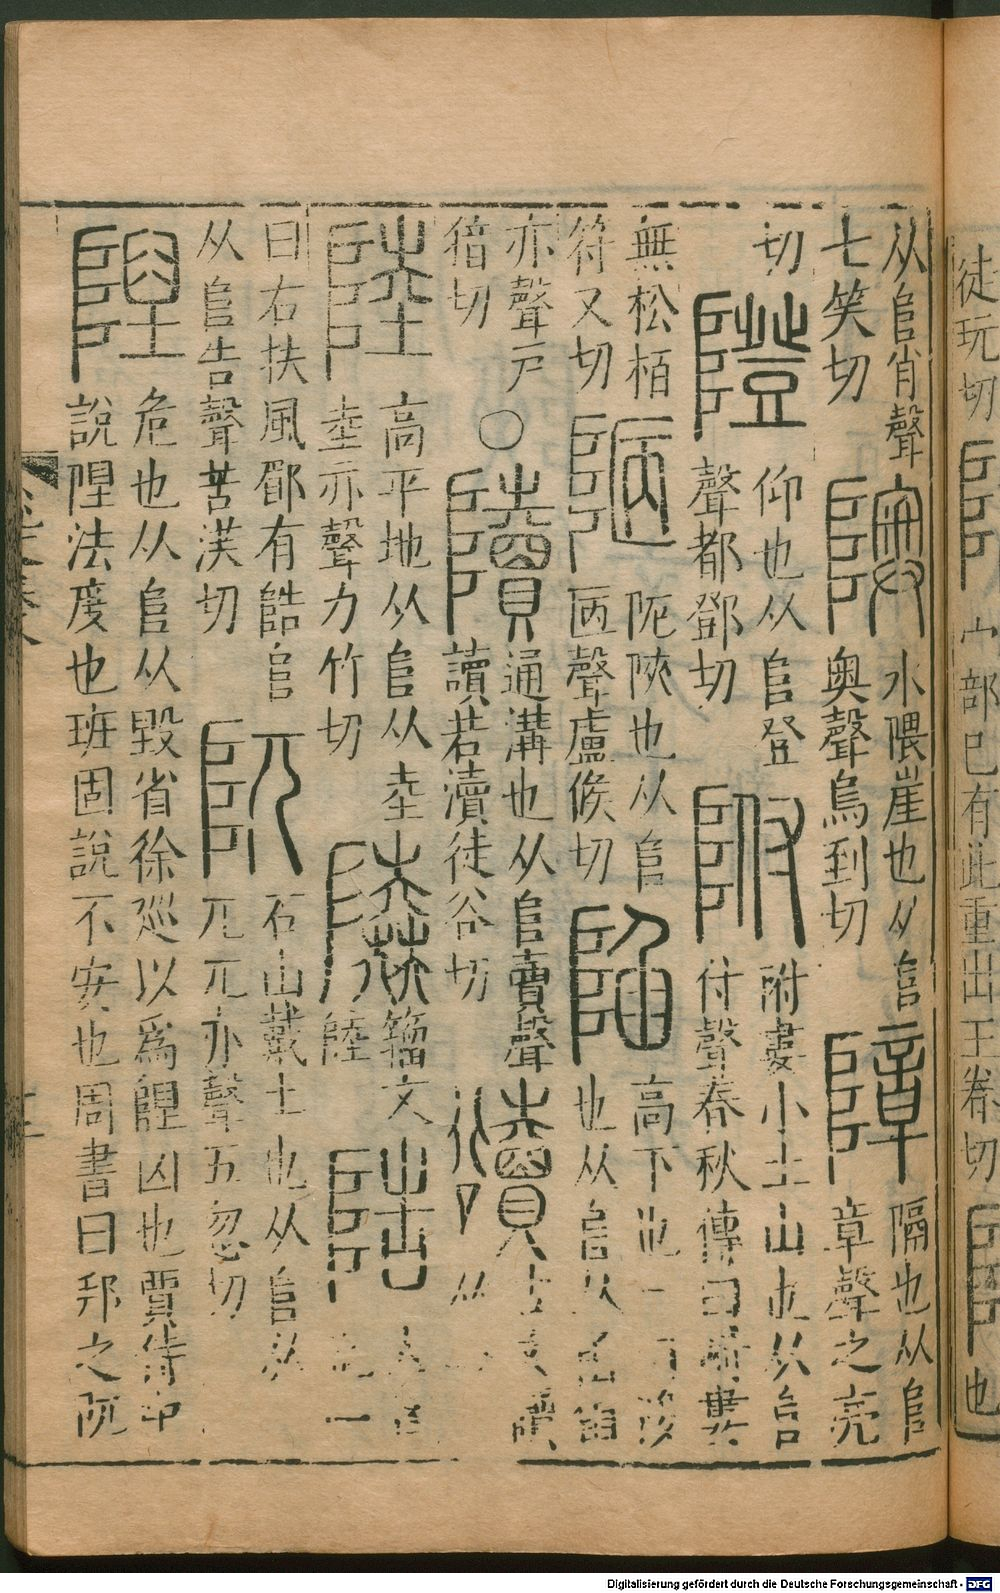 徒玩切
山部已有此重出王眷切
也
从𨸏肖聲
七笑切
隩
水隈崖也从𨸏
奧聲烏到切
障
隔也从𨸏
章聲之亮
切
隥
仰也从𨸏登
聲都鄧切
附
附婁小土山也从𨸏
付聲春秋傳曰附婁
無松栢
符又切
陋
阸陜也从𨸏
㔷聲盧候切
陷
高下也一曰陊
也从𨸏从臽臽
亦聲戶
猪切
○
𨽍
通溝也从𨸏賣聲
讀若瀆徒谷切
古文𨽍
从
陸
高平地从𨸏从坴
坴亦聲力竹切
籒文
陸
一
曰右扶風郿有䧊𨸏
从𨸏告聲苦漢切
阢
石山戴土也从𨸏从
兀兀亦聲五忽切
隉
危也从𨸏从毀省徐巡以爲隉凶也賈侍中
說隉法度也班固說不安也周書曰邦之阢
Digitalisierung gefördert durch die Deutsche Forschungsgemeinschaft - DFG